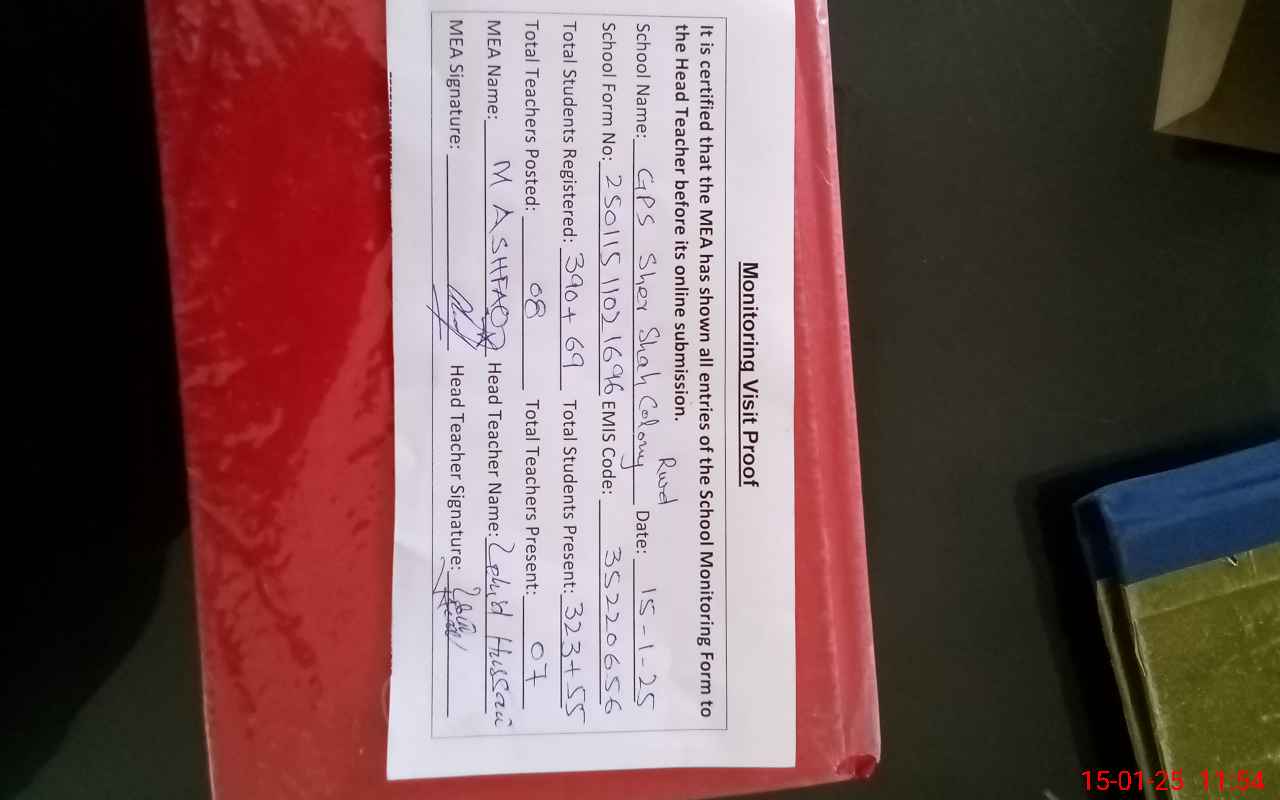 Monitoring Visit Proof
It is certified that the MEA has shown all entries of the School Monitoring Form to
the Head Teacher before its online submission.
School Name: GPS Sher Shah Colony Rwd Date: 15-1-25
School Form No: 250115 1102 1696 EMIS Code: 35220656
Total Students Registered: 390+69 Total Students Present: 323+55
Total Teachers Posted: 08 Total Teachers Present: 07
MEA Name: M ASHFAQ Head Teacher Name: Zahid Hussain
MEA Signature: Head Teacher Signature:
15-01-25 11:54